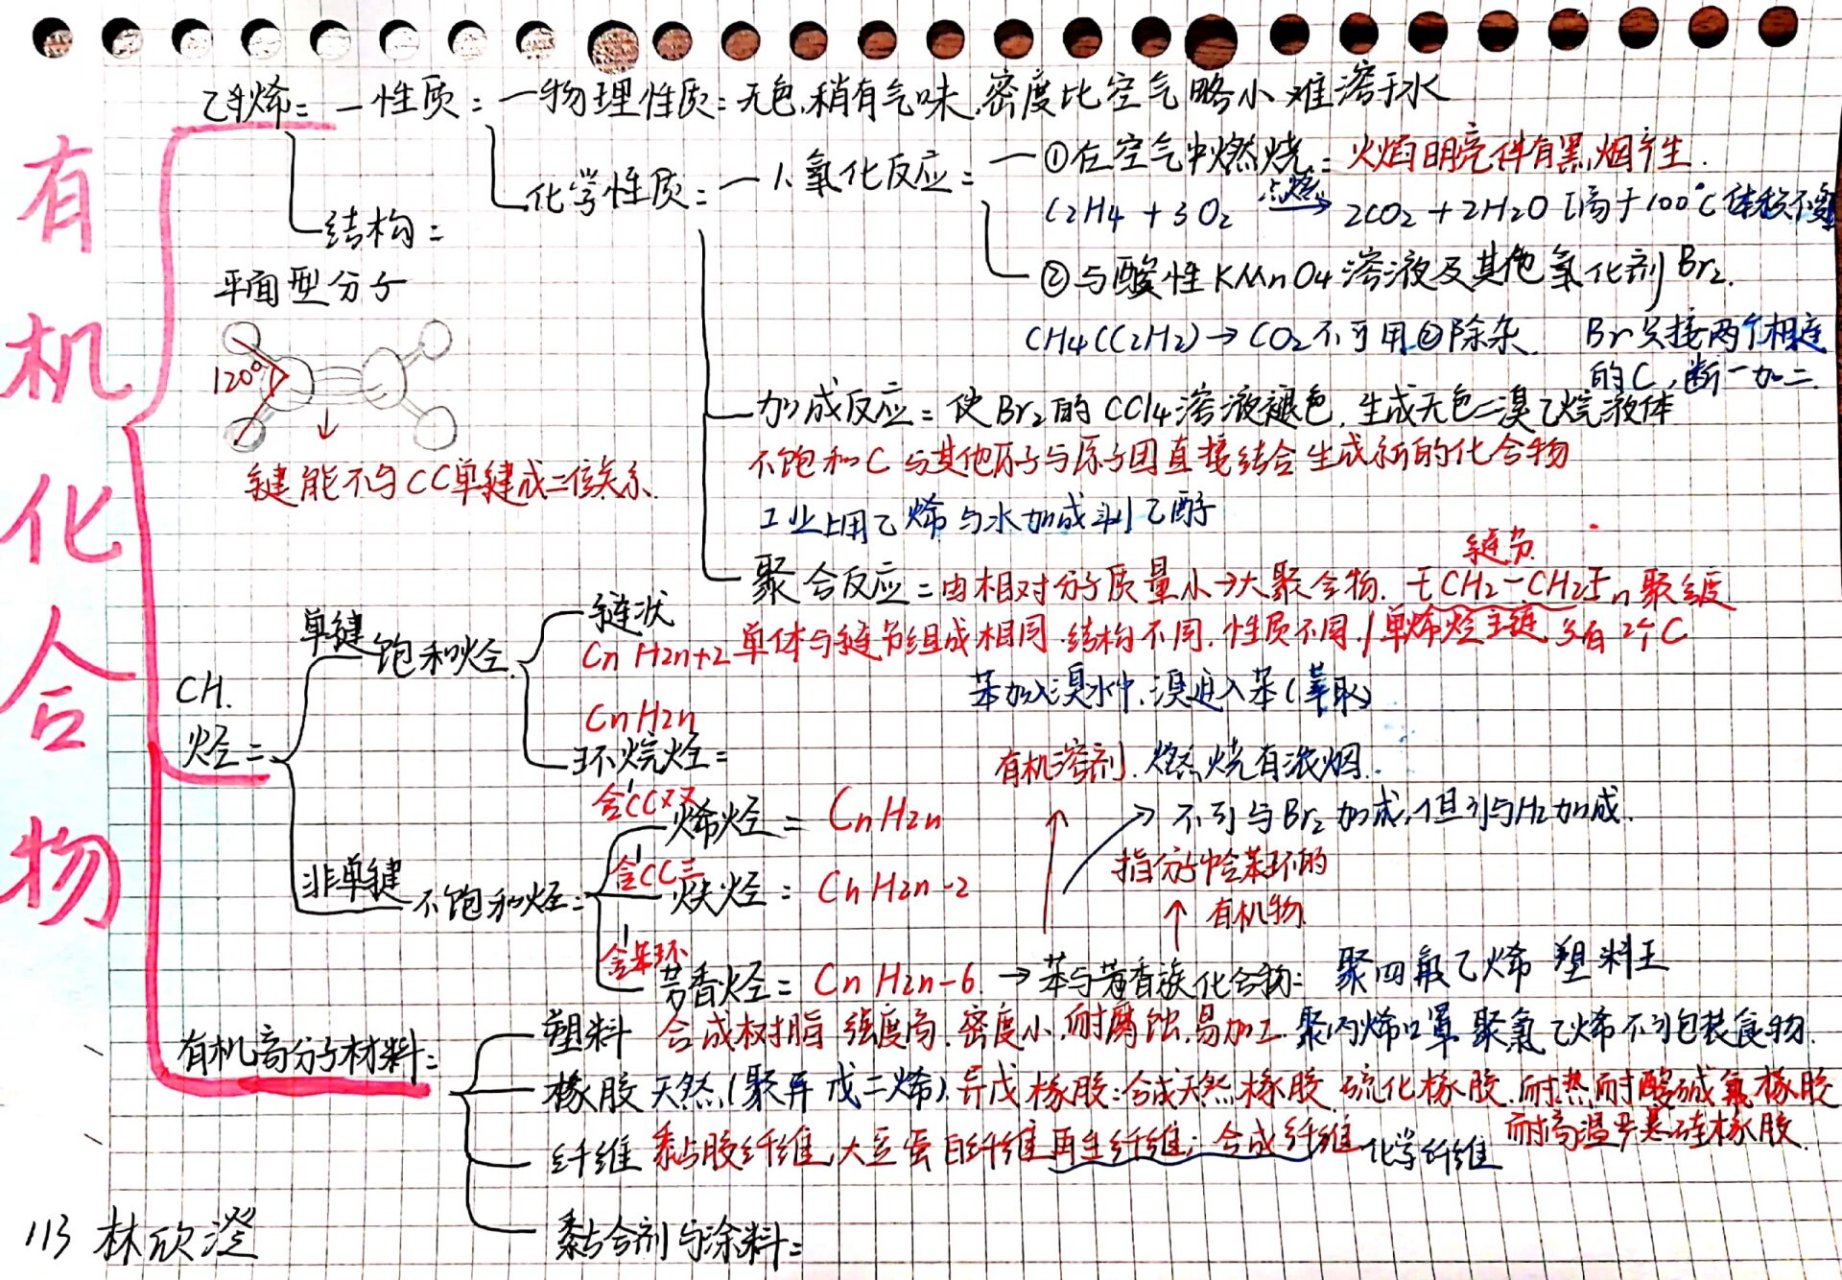 有机化合物
乙烯：
性质：
物理性质：无色,稍有气味,密度比空气略小 难溶于水
化学性质：
1.氧化反应：
①在空气中燃烧：火焰明亮伴有黑烟产生.
C2H4 + 3O2 点燃→ 2CO2 + 2H2O 高于100°C体积不变
②与酸性KMnO4溶液及其他氧化剂Br2.
CH4(C2H2)→CO2不可用②除杂.
Br只接两个相连
的C,断一加二.
加成反应：使Br2的CCl4溶液褪色,生成无色二溴乙烷液体
不饱和C与其他原子与原子团直接结合生成新的化合物
工业上用乙烯与水加成制乙醇
聚合反应：由相对分子质量小→大聚合物.
链节
[CH2-CH2]n 聚合度
单体与链节组成相同.结构不同.性质不同./单烯烃主链 只有2个C
结构：
平面型分子
120°
键能不与CC单键成二倍关系.
CH.
烃：
单键
饱和烃
链状
CnH2n+2
CnH2n
环烷烃：
非单键
不饱和烃：
含CC双
烯烃：CnH2n
含CC三
炔烃：CnH2n-2
含苯环
芳香烃：CnH2n-6. →苯与芳香族化合物：
苯加入溴水中.溴进入苯(萃取)
有机溶剂.燃烧有浓烟.
不可与Br2加成,但可与H2加成.
指分子中含苯环的
有机物.
聚四氟乙烯 塑料王
有机高分子材料：
塑料 合成树脂 强度高.密度小.耐腐蚀.易加工 聚丙烯口罩 聚氯乙烯不可包装食物.
橡胶 天然(聚异戊二烯).异戊橡胶：合成天然橡胶.硫化橡胶.耐热耐酸碱氟橡胶
耐高温 硅橡胶.
纤维 黏胶纤维,大豆蛋白纤维 再生纤维；合成纤维 化学纤维
黏合剂与涂料：
113 林欣澄